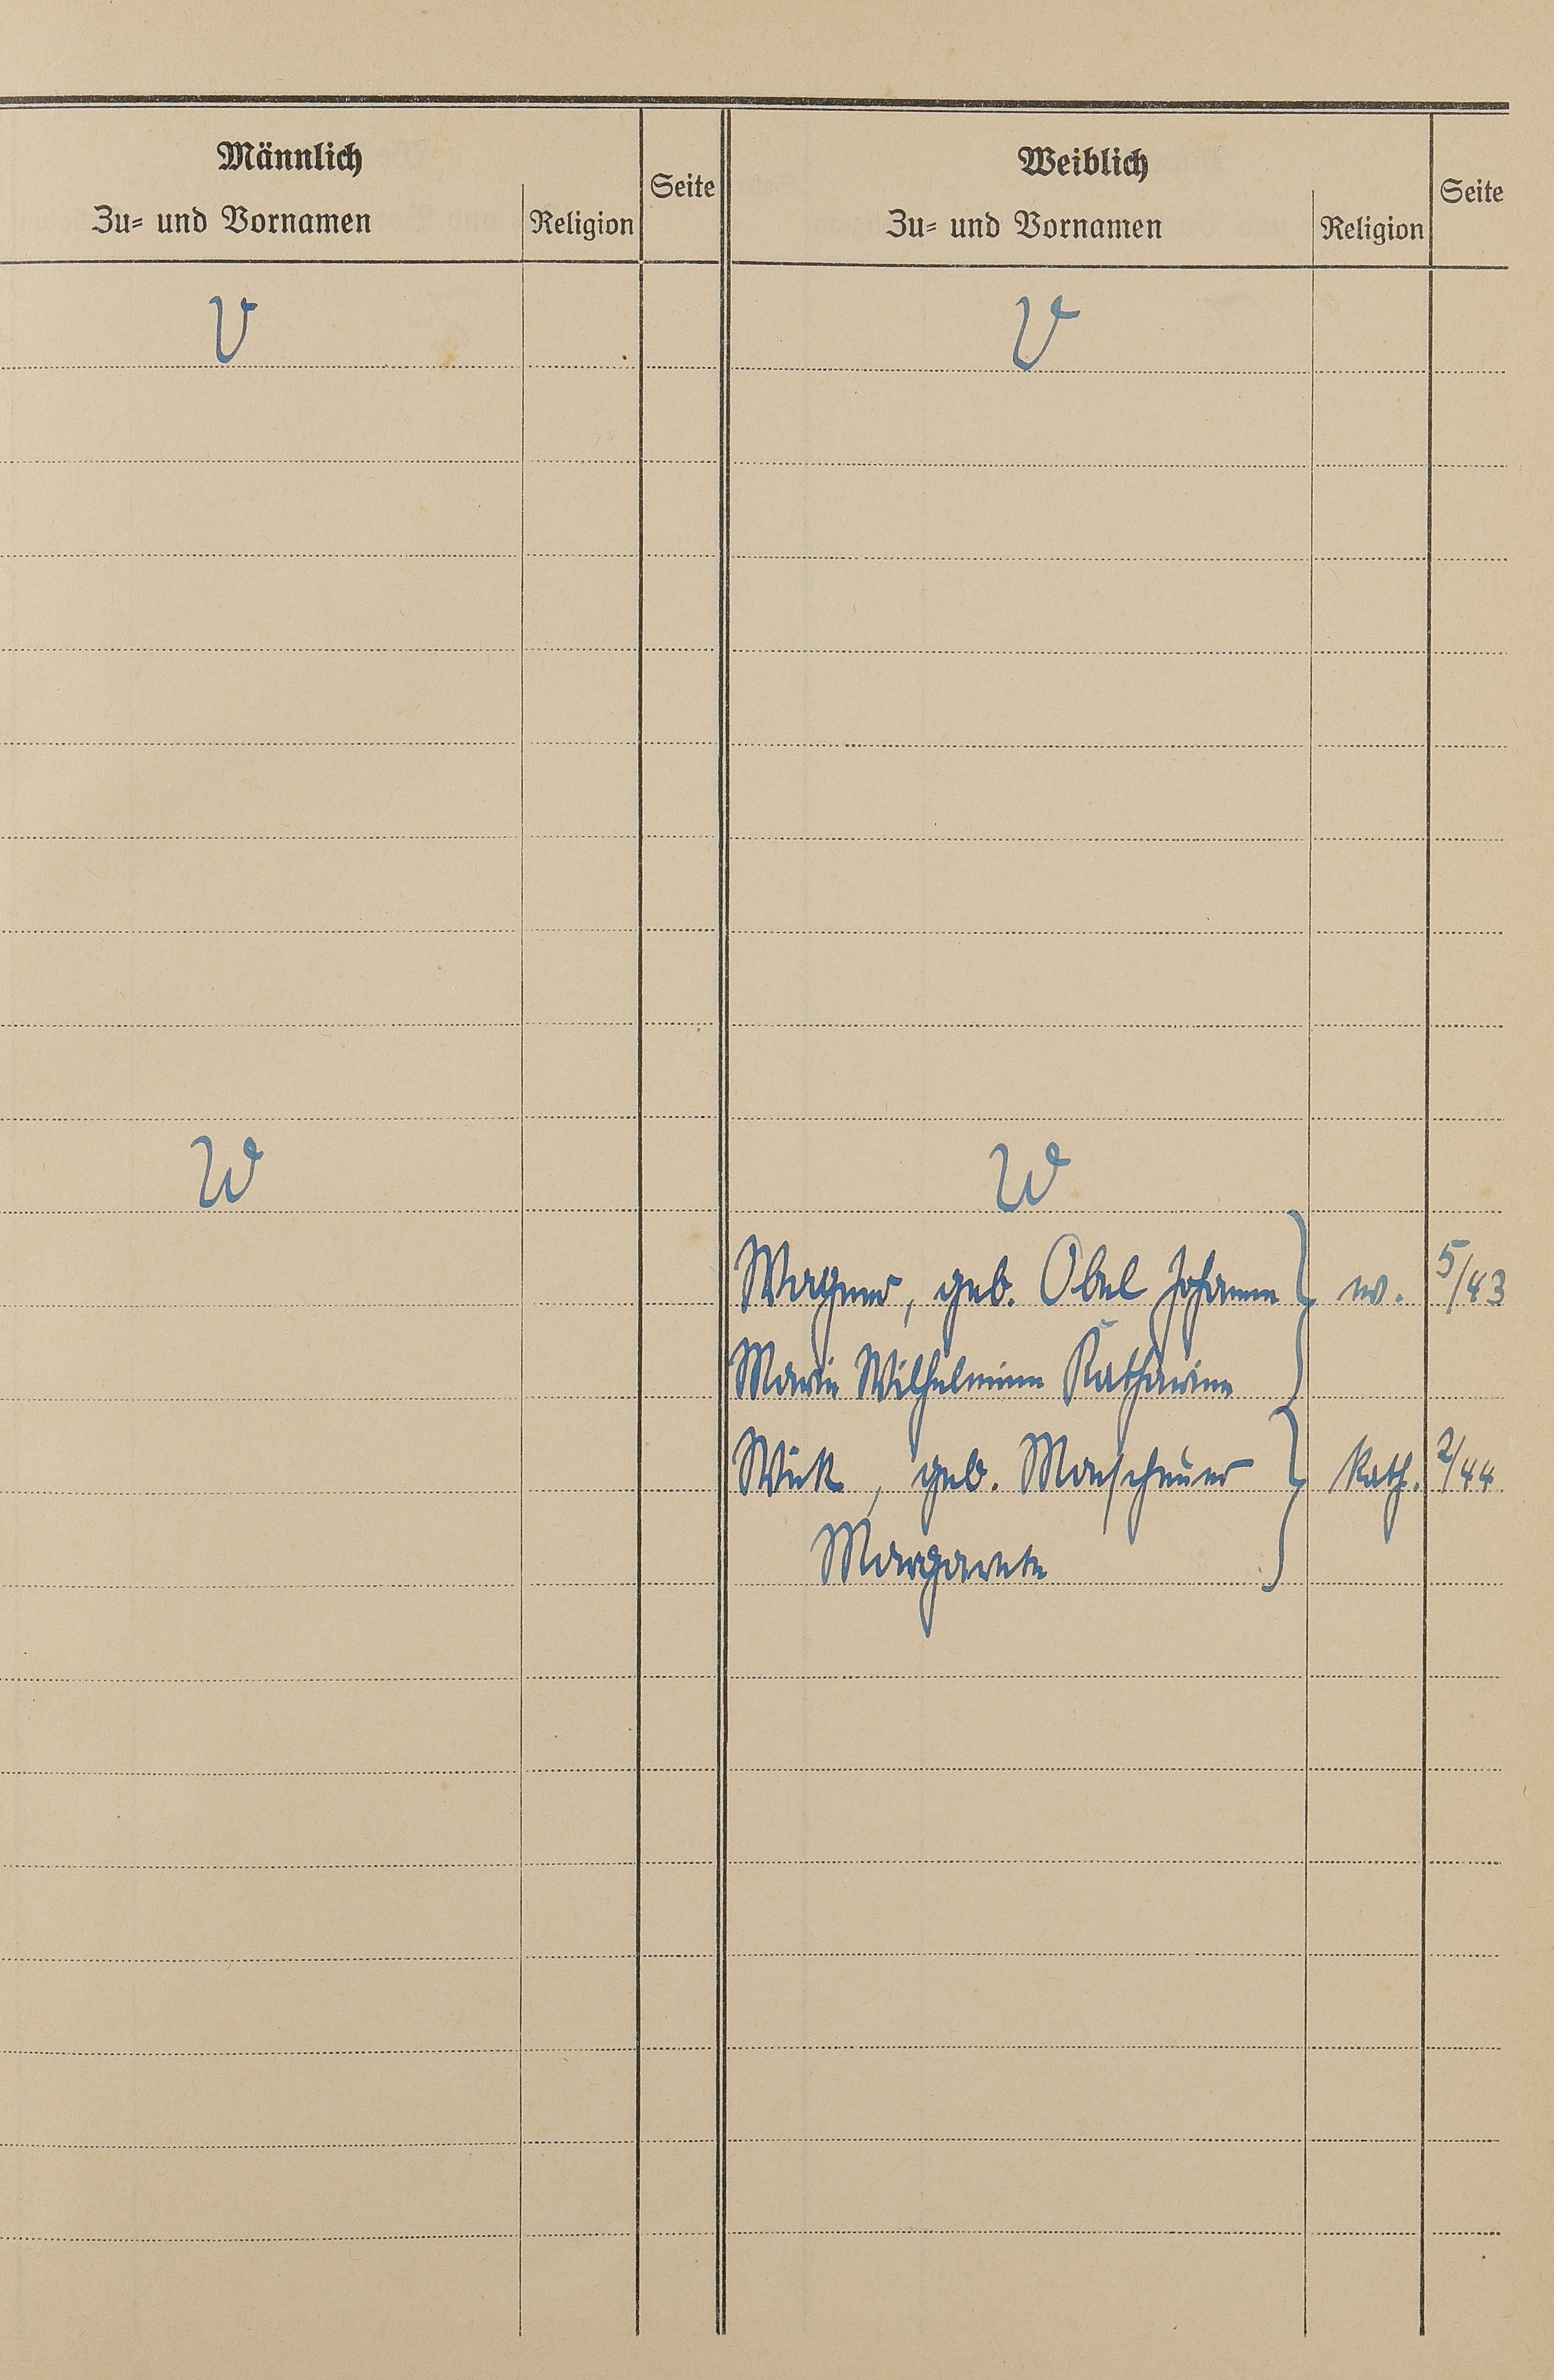 Männlich
Zu- und Vornamen
Religion
Seite
Weiblich
Zu- und Vornamen
Religion
Seite
V
V
W
W
Wagner, geb. Obel Johanne ev. 5/43
Marie Wilhelmine Katharine
Wick, geb. Moescheuer kath. 2/44
Margarete